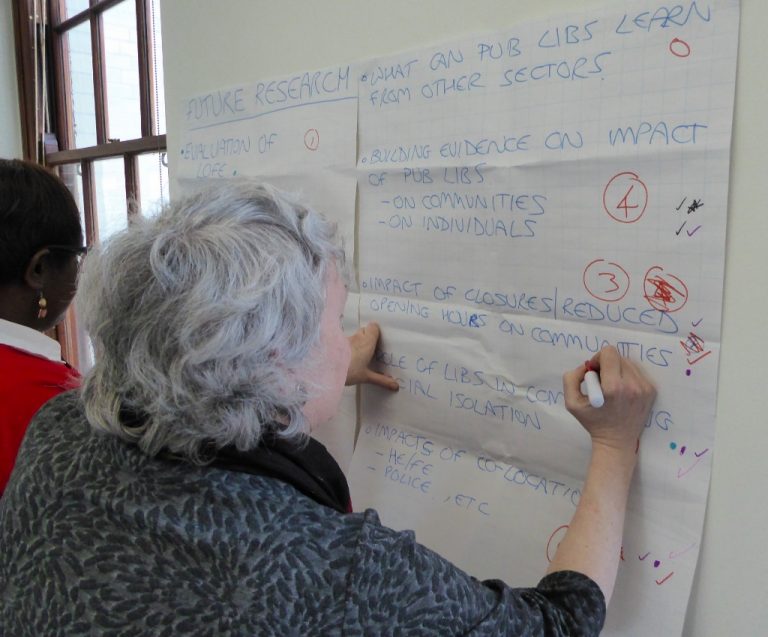 FUTURE RESEARCH
• EVALUATION OF
LOFE.
1
• WHAT CAN PUB LIBS LEARN
FROM OTHER SECTORS.
0
• BUILDING EVIDENCE ON IMPACT
OF PUB LIBS
- ON COMMUNITIES
- ON INDIVIDUALS
4
3
• IMPACT OF CLOSURES/REDUCED
OPENING HOURS ON COMMUNITIES
ROLE OF LIBS IN
ISOLATION
• IMPACTS OF CO-LOCATIO
- HE/FE
- POLICE, ETC